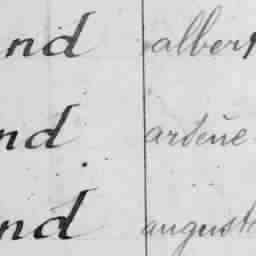 nd albert
nd. arsène
nd auguste